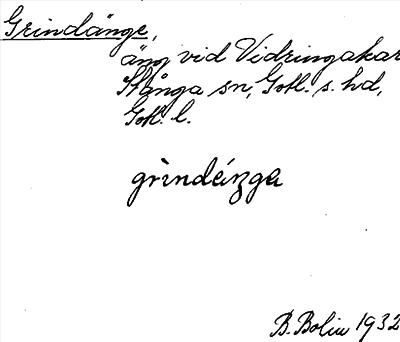 Grindänge,
äng vid Vidringakar
Stånga sn, Gotl. s. hd,
Gotl. l.
grindéŋga
B. Bolin 1932